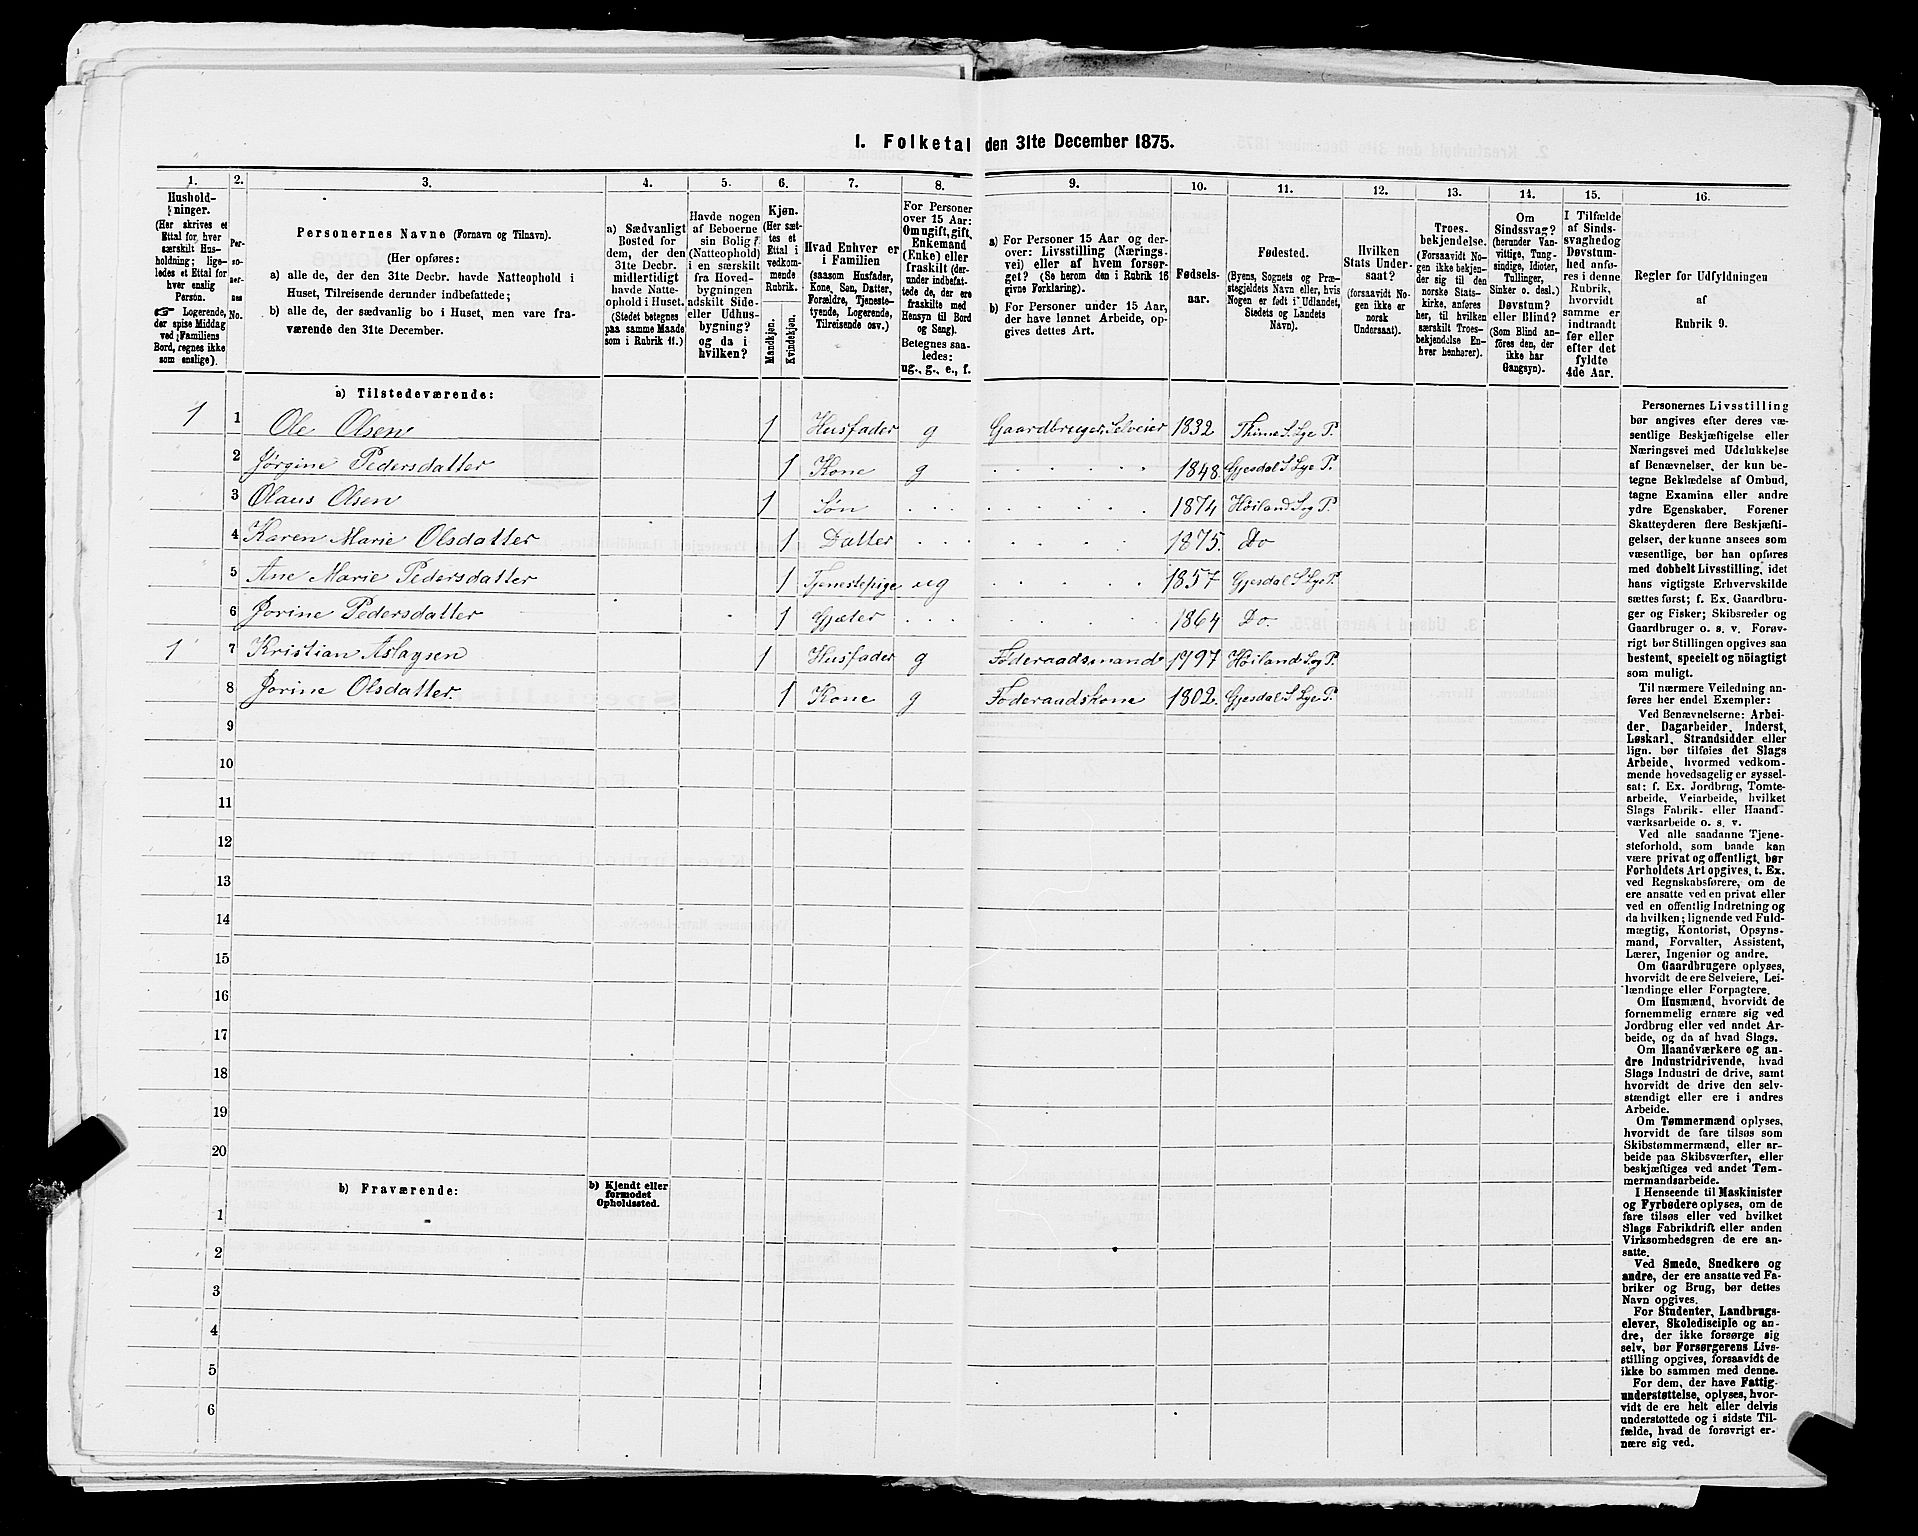 1. Folketal den 31te December 1875.
1. 2. 3. 4. 5. 6. 7. 8. 9. 10. 11. 12. 13. 14. 15. 16.
Hushold-
ninger.
(Her skrives et
Ettal for hver
særskilt Hus-
holdning; lige-
ledes et Ettal for
hver enslig
Person.
☞ Logerende,
der spise Middag
ved Familiens
Bord, regnes ikke
som enslige).
Per-
so-
ner-
nes
No.
Personernes Navne (Fornavn og Tilnavn).
(Her opføres:
a) alle de, der den 31te Decbr. havde Natteophold i
Huset, Tilreisende derunder indbefattede;
b) alle de, der sædvanlig bo i Huset, men vare fra-
værende den 31te December.
a) Sædvanligt
Bosted for
dem, der den
31te Decbr.
midlertidigt
havde Natte-
ophold i Huset.
(Stedet betegnes
paa samme Maade
som i Rubrik 11.)
Havde nogen
af Beboerne
sin Bolig
(Natteophold)
i en særskilt
fra Hoved-
bygningen
adskilt Side-
eller Udhus-
bygning?
og da i
hvilken?
Kjøn.
(Her sæt-
tes et
Ettal i
vedkom-
mende
Rubrik.
Mandkjøn.
Kvindekjøn.
Hvad Enhver er
i Familien
(saasom Husfader,
Kone, Søn, Datter,
Forældre, Tjeneste-
tyende, Logerende,
Tilreisende osv.)
For Personer
over 15 Aar:
Om ugift, gift,
Enkemand
(Enke) eller
fraskilt (der-
under indbefat-
tede de, der ere
fraskilte med
Hensyn til Bord
og Seng).
Betegnes saa-
ledes:
ug., g., e., f.
a) For Personer 15 Aar og der-
over: Livsstilling (Nærings-
vei) eller af hvem forsør-
get? (Se herom den i Rubrik 16
givne Forklaring).
b) For Personer under 15 Aar,
der have lønnet Arbeide, op-
gives dettes Art.
Fødsels-
aar.
Fødested.
(Byens, Sognets og Præ-
stegjeldets Navn eller, hvis
Nogen er født i Udlandet,
Stedets og Landets
Navn).
Hvilken
Stats Under-
saat?
(forsaavidt No-
gen ikke er
norsk
Undersaat).
Troes-
bekjendelse.
(Forsaavidt No-
gen ikke bekjen-
der sig til den
norske Stats-
kirke, anføres
her, til hvilken
særskilt Troes-
bekjendelse En-
hver henhører).
Om
Sindssvag?
(herunder Van-
vittige, Tung-
sindige, Idioter,
Tullinger,
Sinker o. desl.)
Døvstum?
eller Blind?
(Som Blind an-
føres den, der
ikke har
Gangsyn).
I Tilfælde
af Sinds-
svaghed og
Døvstum-
hed anfø-
res i denne
Rubrik,
hvorvidt
samme er
indtraadt
før eller
efter det
fyldte
4de Aar.
Regler for Udfyldningen
af
Rubrik 9.
a) Tilstedeværende:
1 1 Ole Olsen 1 Husfader g Gaardbruger, Selveier 1832 Thime S. Lye P.
2 Jørgine Pedersdatter 1 Kone g 1848. Gjesdal S Lye P.
3 Olaus Olsen 1 Søn 1874 Høiland S og P.
4 Karen Marie Olsdatter 1 Datter 1875. Do
5 Ane Marie Pedersdatter 1 Tjenestepige ug 1857 Gjesdal S Lye P.
6 Jorine Pedersdatter 1 Gjæter 1864 Do.
1 7 Kristian Aslagsen 1 Husfader g Føderaadsmand 1797 Høiland S og P.
8 Jorine Olsdatter. 1 Kone g Føderaadskone 1802. Gjesdal S Lye P.
9
10
11
12
13
14
15
16
17
18
19
20
b) Fraværende:
b) Kjendt eller
formodet
Opholdssted.
1
2
3
4
5
6
Personernes Livsstilling
bør angives efter deres væ-
sentlige Beskjæftigelse eller
Næringsvei med Udelukkelse
af Benævnelser, der kun be-
tegne Beklædelse af Ombud,
tagne Examina eller andre
ydre Egenskaber. Forener
Skatteyderen flere Beskjæfti-
gelser, der kunne ansees som
væsentlige, bør han opføres
med dobbelt Livsstilling, idet
hans vigtigste Erhvervskilde
sættes først; f. Ex. Gaardbru-
ger og Fisker; Skibsreder og
Gaardbruger o. s. v. Forøv-
rigt bør Stillingen opgives saa
bestemt, specielt og nöiagtigt
som muligt.
Til nærmere Veiledning an-
føres her endel Exempler:
Ved Benævnelserne: Arbei-
der, Dagarbeider, Inderst,
Løskarl, Strandsidder eller
lign. bør tilføies det Slags
Arbeide, hvormed vedkom-
mende hovedsagelig er syssel-
sat: f. Ex. Jordbrug, Tomte-
arbeide, Veiarbeide, hvilket
Slags Fabrik- eller Haand-
værksarbeide o. s. v.
Ved alle saadanne Tjene-
steforhold, som baade kan
være privat og offentligt, bør
Forholdets Art opgives, t. Ex.
ved Regnskabsførere, om de
ere ansatte ved en privat eller
ved en offentlig Indretning og
da hvilken; lignende ved Fuld-
mægtig, Kontorist, Opsyns-
mand, Forvalter, Assistent,
Lærer, Ingeniør og andre.
Om Gaardbrugere oplyses,
hvorvidt de ere Selveiere, Lei-
lændinge eller Forpagtere.
Om Husmænd, hvorvidt de
fornemmelig ernære sig ved
Jordbrug eller ved andet Ar-
beide, og da af hvad Slags.
Om Haandværkere og an-
dre Industridrivende, hvad
Slags Industri de drive, samt
hvorvidt de drive den selv-
stændigt eller ere i andres
Arbeide.
Om Tømmermænd oplyses,
hvorvidt de fare tilsøs som
Skibstømmermænd, eller ar-
beide paa Skibsværfter, eller
beskjæftiges ved andet Tøm-
mermandsarbeide.
I Henseende til Maskinister
og Fyrbødere oplyses, om de
fare tilsøs eller ved hvilket
Slags Fabrikdrift eller anden
Virksomhedsgren de ere an-
satte.
Ved Smede, Snedkere og
andre, der ere ansatte ved Fa-
briker og Brug, bør dettes
Navn opgives.
For Studenter, Landbrugs-
elever, Skoledisciple og an-
dre, der ikke forsørge sig
selv, bør Forsørgerens Livs-
stilling opgives, forsaavidt de
ikke bo sammen med denne.
For dem, der have Fattig-
understøttelse, oplyses, hvor-
vidt de ere helt eller delvis
understøttede og i sidste Til-
fælde, hvad de forøvrigt er-
nære sig ved.